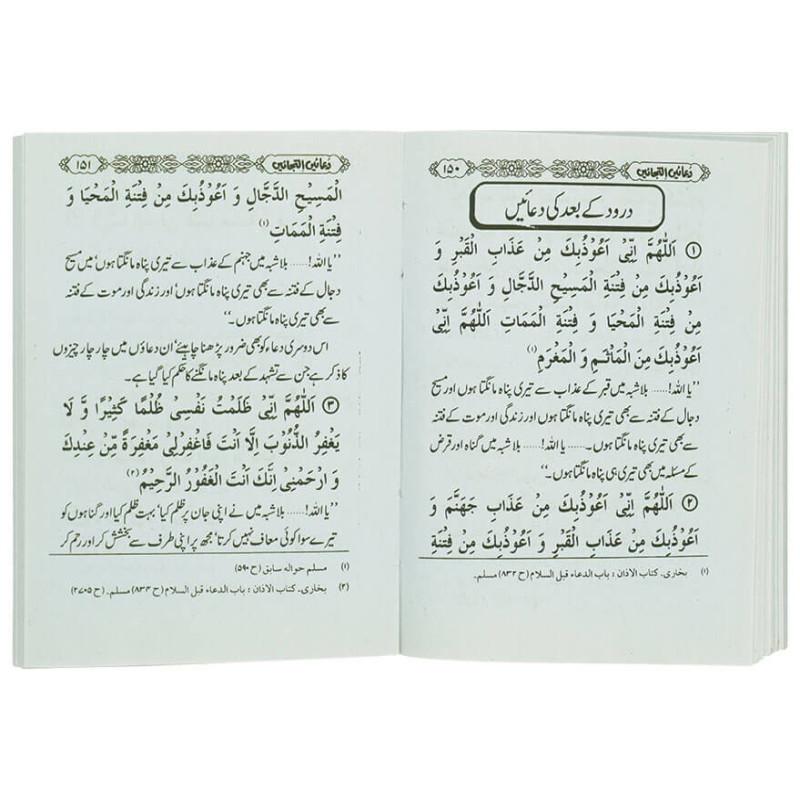 دعائیں التجائیں
۱۵۰
درود کے بعد کی دعائیں
① اَللّٰهُمَّ اِنِّیْ اَعُوْذُبِكَ مِنْ عَذَابِ الْقَبْرِ وَ
اَعُوْذُبِكَ مِنْ فِتْنَةِ الْمَسِیْحِ الدَّجَّالِ وَ اَعُوْذُبِكَ
مِنْ فِتْنَةِ الْمَحْیَا وَ فِتْنَةِ الْمَمَاتِ اَللّٰهُمَّ اِنِّیْ
اَعُوْذُبِكَ مِنَ الْمَأْثَمِ وَ الْمَغْرَمِ (۱)
’’یا اللہ! ...... بلاشبہ میں قبر کے عذاب سے تیری پناہ مانگتا ہوں اور مسیح
دجال کے فتنہ سے بھی تیری پناہ مانگتا ہوں اور زندگی اور موت کے فتنہ
سے بھی تیری پناہ مانگتا ہوں۔ ...... یا اللہ! ...... بلاشبہ میں گناہ اور قرض
کے مسئلہ میں بھی تیری ہی پناہ مانگتا ہوں۔‘‘
② اَللّٰهُمَّ اِنِّیْ اَعُوْذُبِكَ مِنْ عَذَابِ جَهَنَّمَ وَ
اَعُوْذُبِكَ مِنْ عَذَابِ الْقَبْرِ وَ اَعُوْذُبِكَ مِنْ فِتْنَةِ
(۱) بخاری۔ کتاب الاذان : باب الدعاء قبل السلام (ح ۸۳۲) مسلم۔
دعائیں التجائیں
۱۵۱
الْمَسِیْحِ الدَّجَّالِ وَ اَعُوْذُبِكَ مِنْ فِتْنَةِ الْمَحْیَا وَ
فِتْنَةِ الْمَمَاتِ (۱)
’’یا اللہ! ...... بلاشبہ میں جہنم کے عذاب سے تیری پناہ مانگتا ہوں‘ میں مسیح
دجال کے فتنہ سے بھی تیری پناہ مانگتا ہوں‘ اور زندگی اور موت کے فتنہ
سے بھی تیری پناہ مانگتا ہوں۔‘‘
اس دوسری دعاء کو بھی ضرور پڑھنا چاہیئے‘ ان دعاؤں میں چار چار چیزوں
کا ذکر ہے جن سے تشہد کے بعد پناہ مانگنے کا حکم کیا گیا ہے۔
③ اَللّٰهُمَّ اِنِّیْ ظَلَمْتُ نَفْسِیْ ظُلْمًا كَثِیْرًا وَّ لَا
یَغْفِرُ الذُّنُوْبَ اِلَّا اَنْتَ فَاغْفِرْلِیْ مَغْفِرَةً مِّنْ عِنْدِكَ
وَ ارْحَمْنِیْ اِنَّكَ اَنْتَ الْغَفُوْرُ الرَّحِیْمُ (۲)
’’یا اللہ! ...... بلاشبہ میں نے اپنی جان پر ظلم کیا‘ بہت ظلم کیا اور گناہوں کو
تیرے سوا کوئی معاف نہیں کرتا‘ مجھ پر اپنی طرف سے بخشش کر اور رحم کر
(۱) مسلم حوالہ سابق (ح ۵۹۰)
(۲) بخاری۔ کتاب الاذان : باب الدعاء قبل السلام (ح ۸۳۴) مسلم۔ (ح ۲۷۰۵)